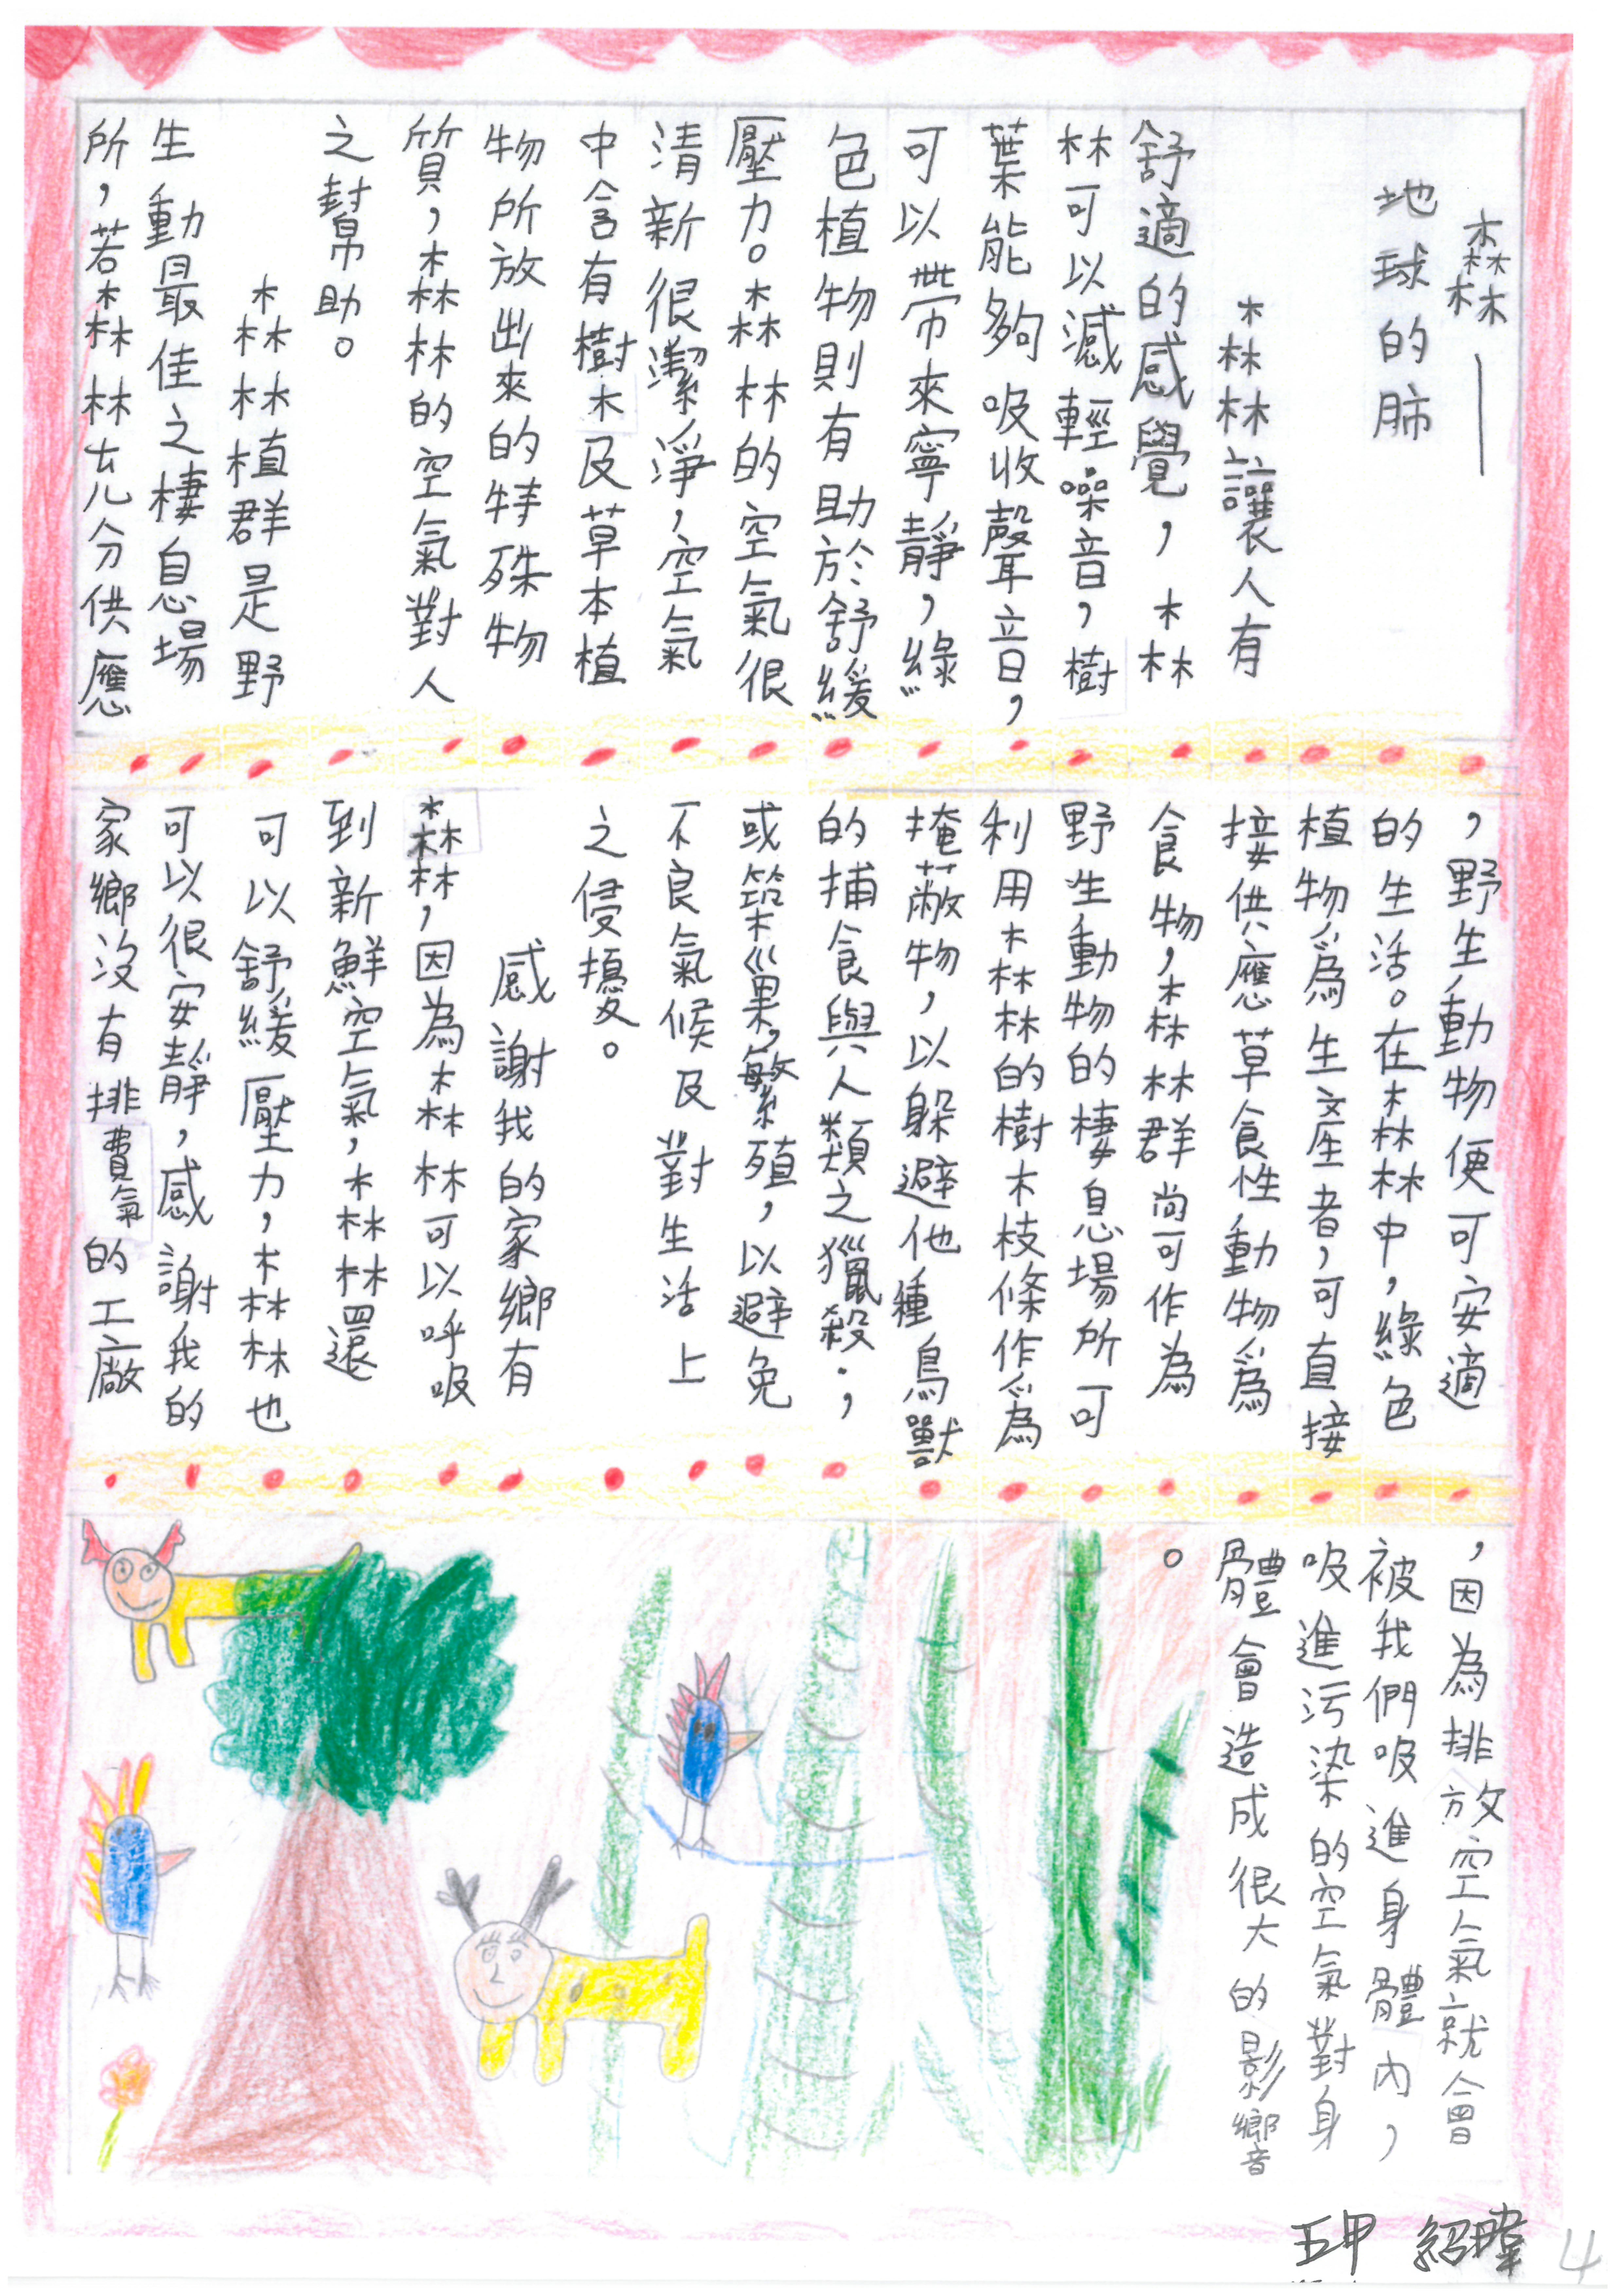 森林——
地球的肺
森林讓人有
舒適的感覺，森
林可以減輕噪音，樹
葉能夠吸收聲音，
可以帶來寧靜，綠
色植物則有助於舒緩
壓力。森林的空氣很
清新很潔淨，空氣
中含有樹木及草本植
物所放出來的特殊物
質，森林的空氣對人
之幫助。
森林植群是野
生動最佳之棲息場
所，若森林ㄊㄦ分供應
，野生動物便可安適
的生活。在森林中，綠色
植物為生產者，可直接
接供應草食性動物為
食物，森林群尚可作為
野生動物的棲息場所可
利用森林的樹木枝條作為
掩蔽物，以躲避他種鳥獸
的捕食與人類之獵殺.，
或築巢，繁殖，以避免
不良氣候及對生活上
之侵擾。
感謝我的家鄉有
森林，因為森林可以呼吸
到新鮮空氣，森林還
可以舒緩壓力，森林也
可以很安靜，感謝我的
家鄉沒有排費氣的工廠
，因為排放空氣就會
被我們吸進身體內，
吸進污染的空氣對身
體會造成很大的影響
。
五甲 紹暐 4